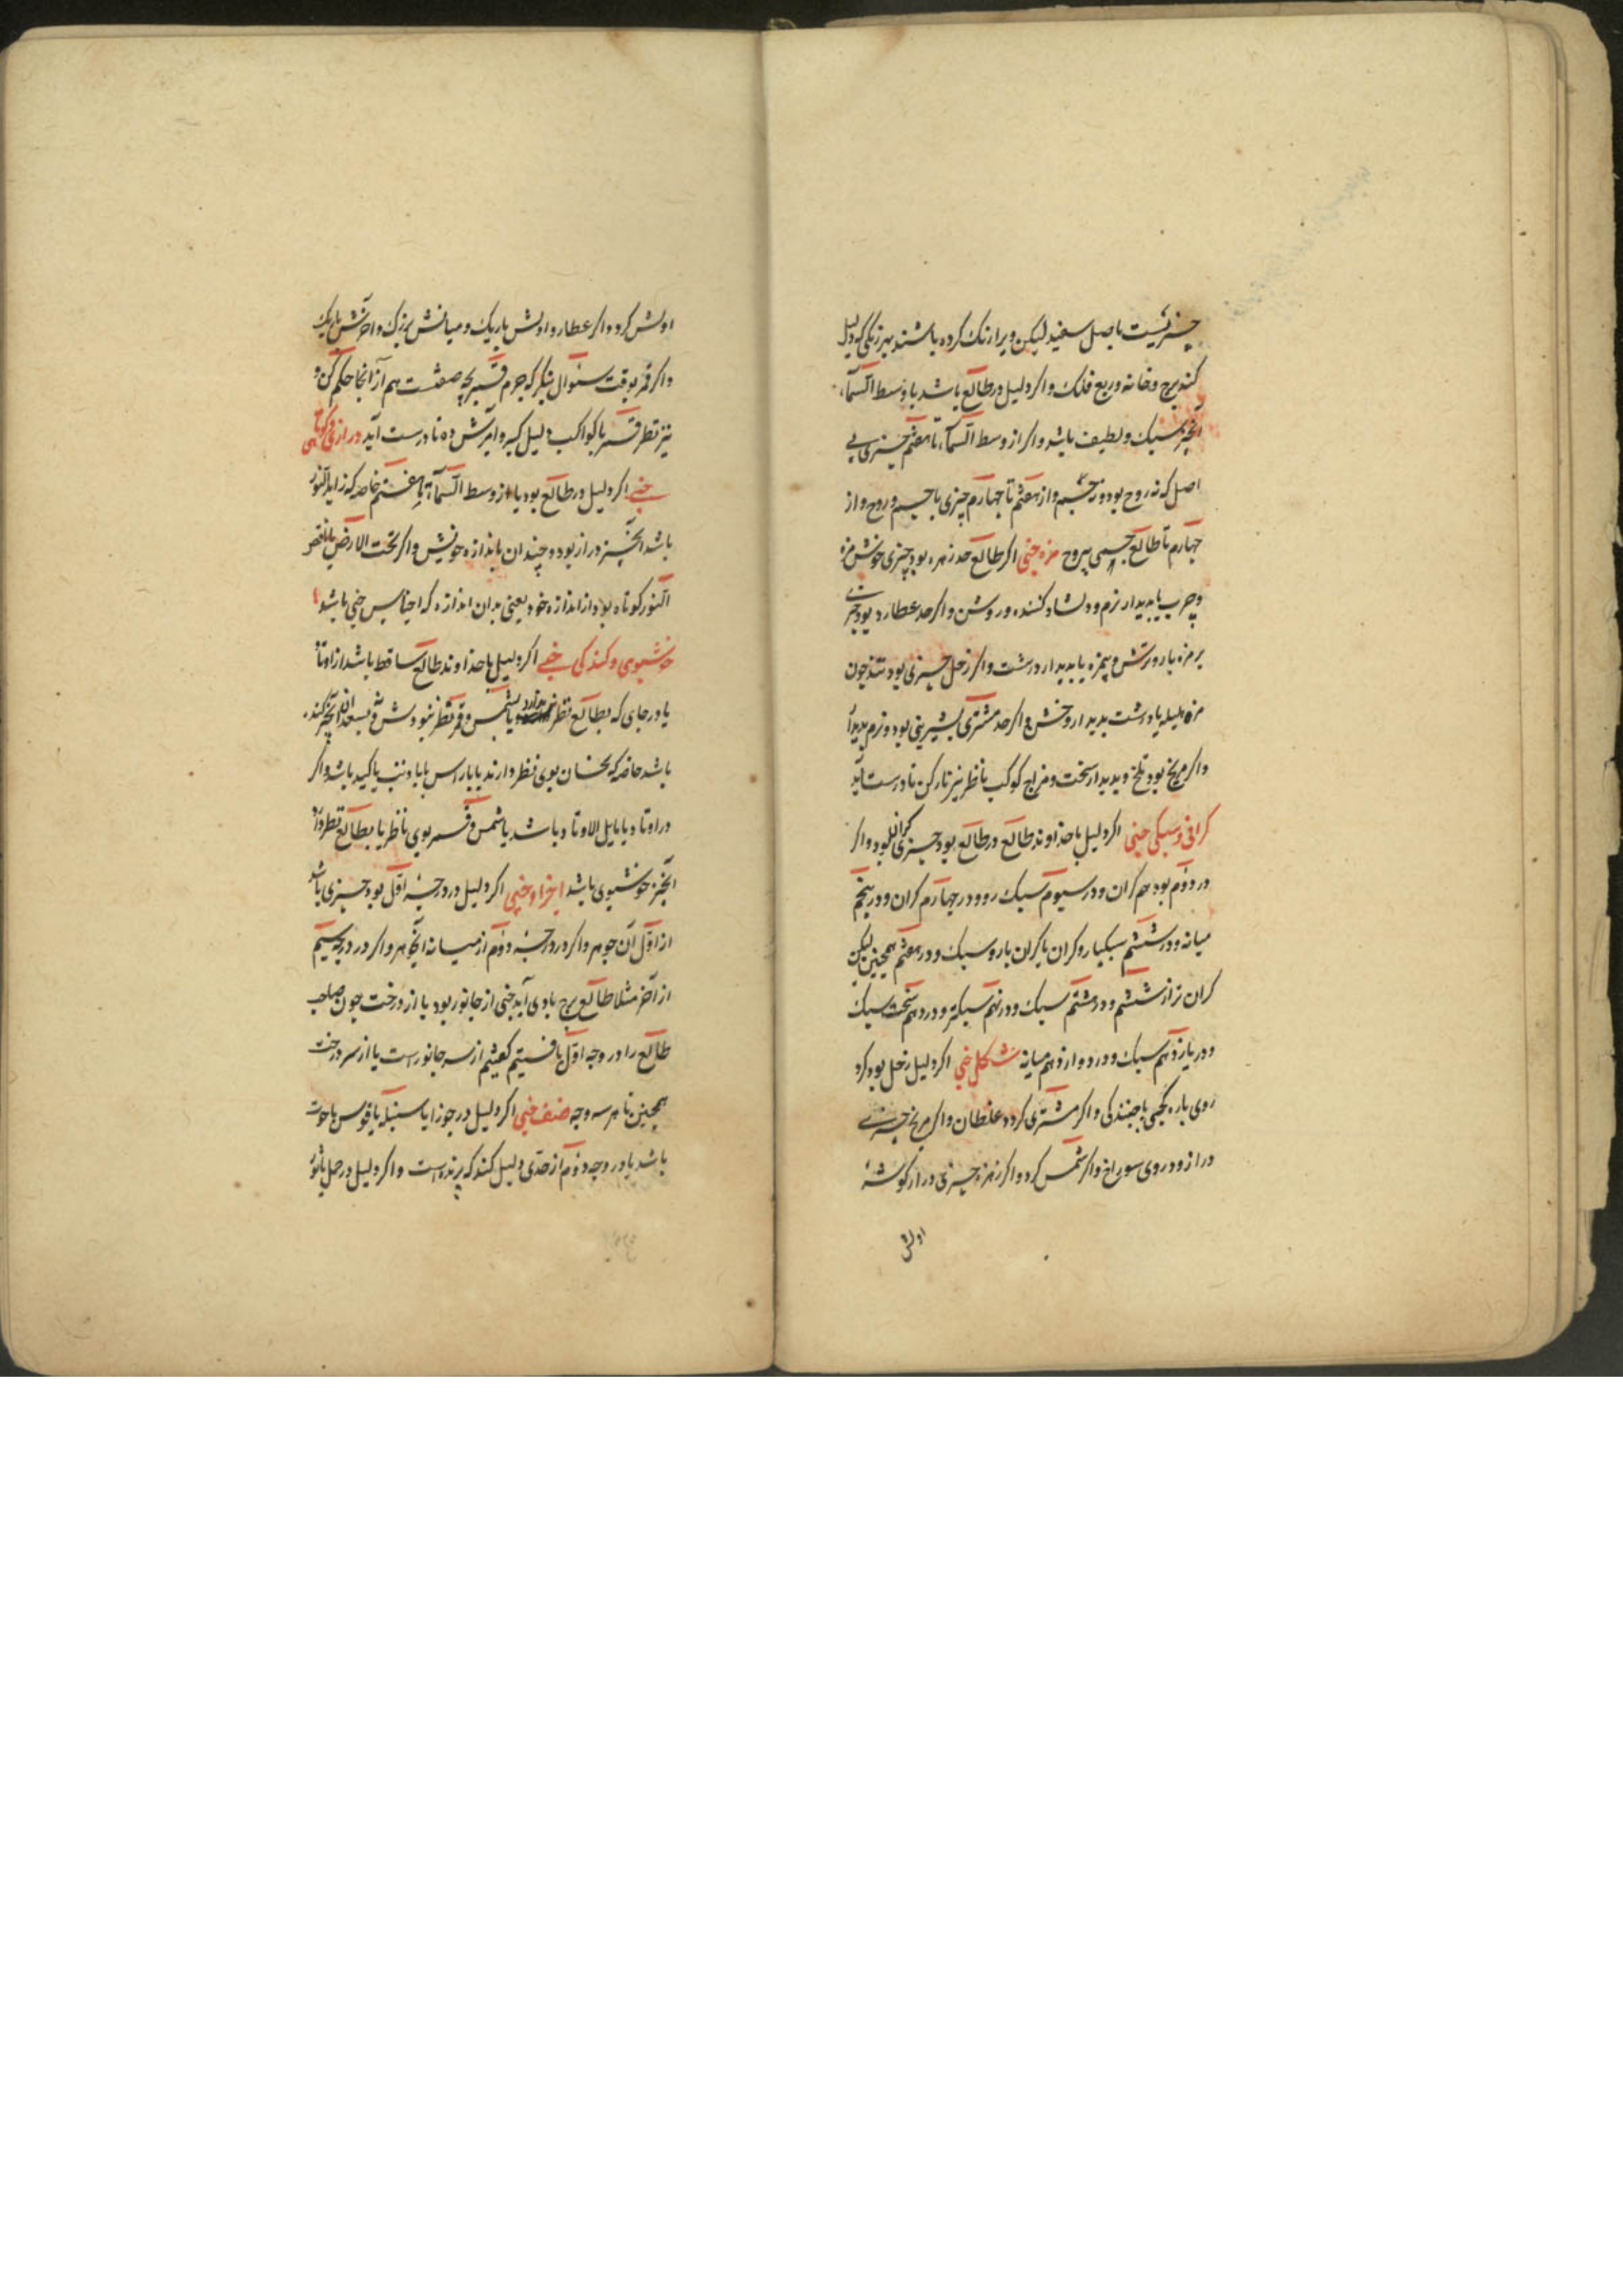 چیزیست باصل سفید لیکن ویرا رنک کرده باشند بهر رنکی که دلیل
کند برج و خانه و ربع فلک و اکر دلیل در طالع باشد یا وسط السماء
آنچیز سبک و لطیف باشد و اکر از وسط السماء تا هفتم چیزی بی
اصل که نه روح بود و نه جسم و از هفتم تا چهارم چیزی با جسم و روح و از
چهارم تا طالع جسمی بیروح مزه خبی اکر طالع حد زهره بود چیزی خوش مزه
و چرب یا بدیدار نرم و دلشاد کننده و روشن و اکر حد عطارد بود چیزی
بر مزه یا رو ترش و بیمزه یا بدیدار درشت و اکر زحل چیزی بود تند چون
مزه هلیله یا درشت بدیدار و خش و اکر حد مشتری بشیرینی بود و نرم بدیدار
و اکر مریخ بود تلخ و بدیدار سخت و مزاج کوکب ناظر نیز نار کن تا درست آید
کرانی و سبکی خبی اکر دلیل با خداوند طالع در طالع بود چیزی کران بود و اکر
در دوم بود هم کران و در سیوم سبک رو و در چهارم کران و در پنجم
میانه و در ششم سبکبار و کران یا کران بار و سبک و در هفتم همچنین لیکن
کران تر از ششم و در هشتم سبک و در نهم سبکتر و در دهم سخت سبک
و در یازدهم سبک و در دوازدهم میانه شکل خبی اکر دلیل زحل بود کرد
روی باره کجی یا جنبندکی و اکر مشتری کرد و غلطان و اکر مریخ چیزی
دراز و در وی سوراخ و اکر شمس کرد و اکر زهره چیزی دراز کوشه
اولش
اولش کرد و اکر عطارد اولش باریک و میانش بزرک و آخرش باریک
و اکر قمر بوقت سئوال بنکر که جرم قمر بچه صفتست هم از آنجا حکم کن و
نیز نظر قمر با کواکب دلیل کیر و آمیزش ده تا درست آید درازی و کوتاهی
خبی اکر دلیل در طالع بود یا از وسط السماء تا هفتم خاصه که زاید النور
باشد آنچیز دراز بود و چندان باندازه خویش و اکر تحت الارض یا ناقص
النور کوتاه بود از اندازه خود یعنی بدان اندازه که اجناس خبی باشد
خوشبوی و کندکی خبی اکر دلیل یا خداوند طالع ساقط باشد از اوتاد
یا در جای که بطالع نظر ندارد یا شمس و قمر نظر نبودش و بسعد ان آنچیز کنده
باشد خاصه که نحسان بوی نظر دارند یا با راس یا با ذنب یا کید باشد و اکر
در اوتاد یا مایل الاوتاد باشد یا شمس و قمر بوی ناظر یا بطالع نظر دارد
آنچیز خوشبوی باشد اجزاء خبی اکر دلیل در درجه اول بود چیزی باشد
از اول آن جوهر و اکر در درجه دوم از میانه آنجوهر و اکر در درجه سیم
از آخر مثلا طالع برج بادی آید خبی از جانور بود یا از درخت چون صاحب
طالع را در وجه اول یافتیم کفتیم از سر جانور است یا از سر درخت
همچنین تا هر سه وجه صنف خبی اکر دلیل در جوزا یا سنبله یا قوس یا حوت
باشد یا در وجه دوم از جدی دلیل کند که پرنده است و اکر دلیل در حمل یا ثور